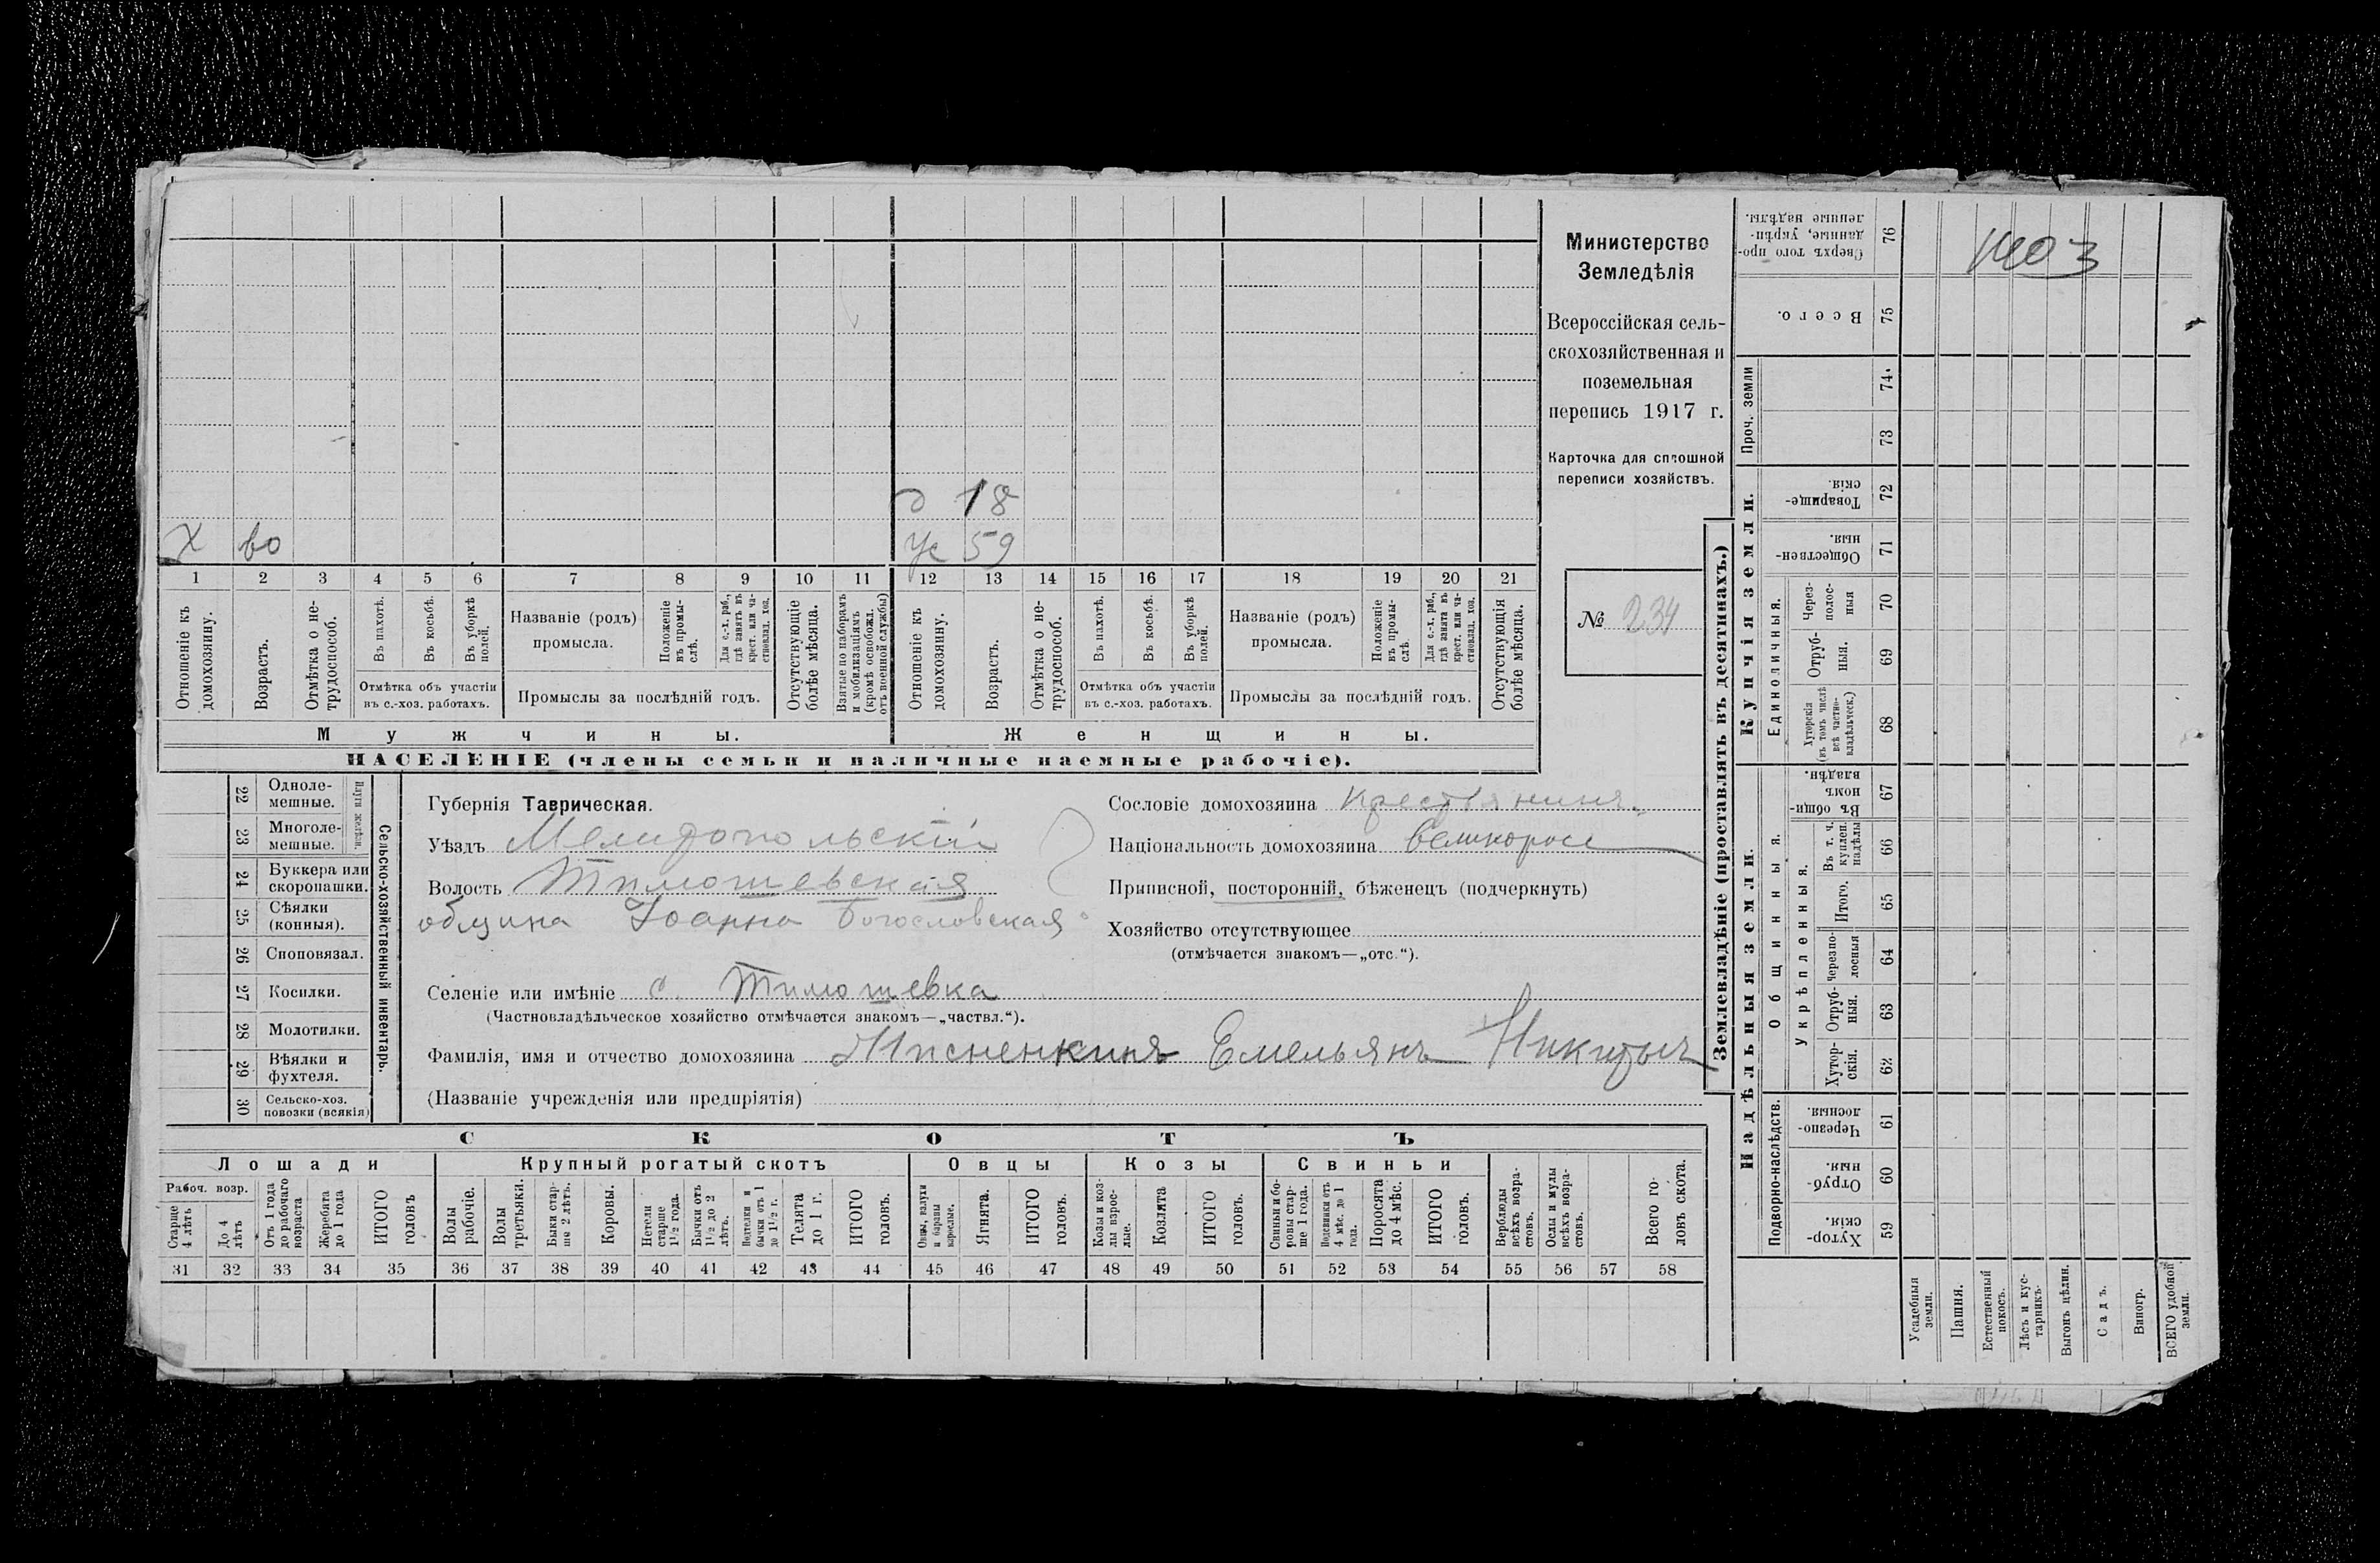 д 18
Х 60 Ж 59
1 2 3 4 5 6 7 8 9 10 11 12 13 14 15 16 17 18 19 20 21
Отношеніе къ домохозяину.
Возрастъ.
Отмѣтка о нетрудоспособ.
Въ пахотѣ.
Въ косьбѣ.
Въ уборкѣ полей.
Отмѣтка объ участіи
въ с.-хоз. работахъ.
Названіе (родъ)
промысла.
Положеніе въ промыслѣ.
Для с.-х. раб., гдѣ занятъ въ крест. или частновлад. хоз.
Промыслы за послѣдній годъ.
Отсутствующіе болѣе мѣсяца.
Взятые по наборамъ и мобилизаціямъ (кромѣ освобожд. отъ военной службы)
Отношеніе къ домохозяину.
Возрастъ.
Отмѣтка о нетрудоспособ.
Въ пахотѣ.
Въ косьбѣ.
Въ уборкѣ полей.
Отмѣтка объ участіи
въ с.-хоз. работахъ.
Названіе (родъ)
промысла.
Положеніе въ промыслѣ
Для с.-х. раб., гдѣ занята въ крест. или частновлад. хоз.
Промыслы за послѣдній годъ.
Отсутствующія болѣе мѣсяца.
Мужчины. Женщины.
НАСЕЛЕНІЕ (члены семьи и наличные наемные рабочіе).
Министерство
Земледѣлія
Всероссійская сель-
скохозяйственная и
поземельная
перепись 1917 г.
Карточка для сплошной
переписи хозяйствъ.
№ 234
22 Одноле-
мешные.
23 Многоле-
мешные.
Плуги желѣзн.
24 Буккера или
скоропашки.
25 Сѣялки
(конныя).
26 Сноповязал.
27 Косилки.
28 Молотилки.
29 Вѣялки и
фухтеля.
30 Сельско-хоз.
повозки (всякія)
Сельско-хозяйственный инвентарь.
Губернія Таврическая.
Уѣздъ Мелитопольскій
Волость Тимошевская
община Іоанно Богословская
Селеніе или имѣніе с. Тимошевка
(Частновладѣльческое хозяйство отмѣчается знакомъ—„частвл.“).
Фамилія, имя и отчество домохозяина Емельянъ Никитыч
(Названіе учрежденія или предпріятія)
Сословіе домохозяина Крестьянинъ.
Національность домохозяина Великоросс
Приписной, посторонній, бѣженецъ (подчеркнуть)
Хозяйство отсутствующее
(отмѣчается знакомъ—„отс.“).
СКОТЪ
Лошади Крупный рогатый скотъ Овцы Козы Свиньи
Рабоч. возр.
Старше 4 лѣтъ
До 4 лѣтъ
Отъ 1 года до рабочаго возраста
Жеребята до 1 года
ИТОГО головъ
Волы рабочіе.
Волы третьяки.
Быки старше 2 лѣтъ.
Коровы.
Нетели старше 1½ года.
Бычки отъ 1½ до 2 лѣтъ.
Подтелки и бычки отъ 1 до 1½ г.
Телята до 1 г.
ИТОГО головъ.
Овцы, валухи и бараны взрослые.
Ягнята.
ИТОГО головъ.
Козы и козлы взрослые.
Козлята
ИТОГО головъ.
Свиньи и боровы старше 1 года.
Подсвинки отъ 4 мѣс. до 1 года.
Поросята до 4 мѣс.
ИТОГО головъ.
Верблюды всѣхъ возрастовъ.
Ослы и мулы всѣхъ возрастовъ.
Всего головъ скота.
31 32 33 34 35 36 37 38 39 40 41 42 43 44 45 46 47 48 49 50 51 52 53 54 55 56 57 58
Землевладѣніе (проставлять въ десятинахъ.)
Купчія земли.
Надѣльныя земли.
Сверхъ того проданные, укрѣпленные надѣлы. 76
Всего. 75
Проч. земли 74 73
Товарищескія. 72
Общественныя. 71
Единоличныя.
Черезполосныя 70
Отрубныя. 69
Хуторскія (въ томъ числѣ всѣ частновладѣльческ.) 68
Общинныя.
Въ общинномъ владѣн. 67
Укрѣпленныя.
Въ т. ч. куплен. надѣлы 66
Итого. 65
Черезполосныя 64
Отрубныя. 63
Хуторскія. 62
Подворно-наслѣдств.
Черезполосныя. 61
Отрубныя. 60
Хуторскія. 59
Усадебныя земли.
Пашня.
Естественный покосъ.
Лѣсъ и кустарникъ.
Выгонъ цѣлин.
Садъ.
Виногр.
ВСЕГО удобной земли.